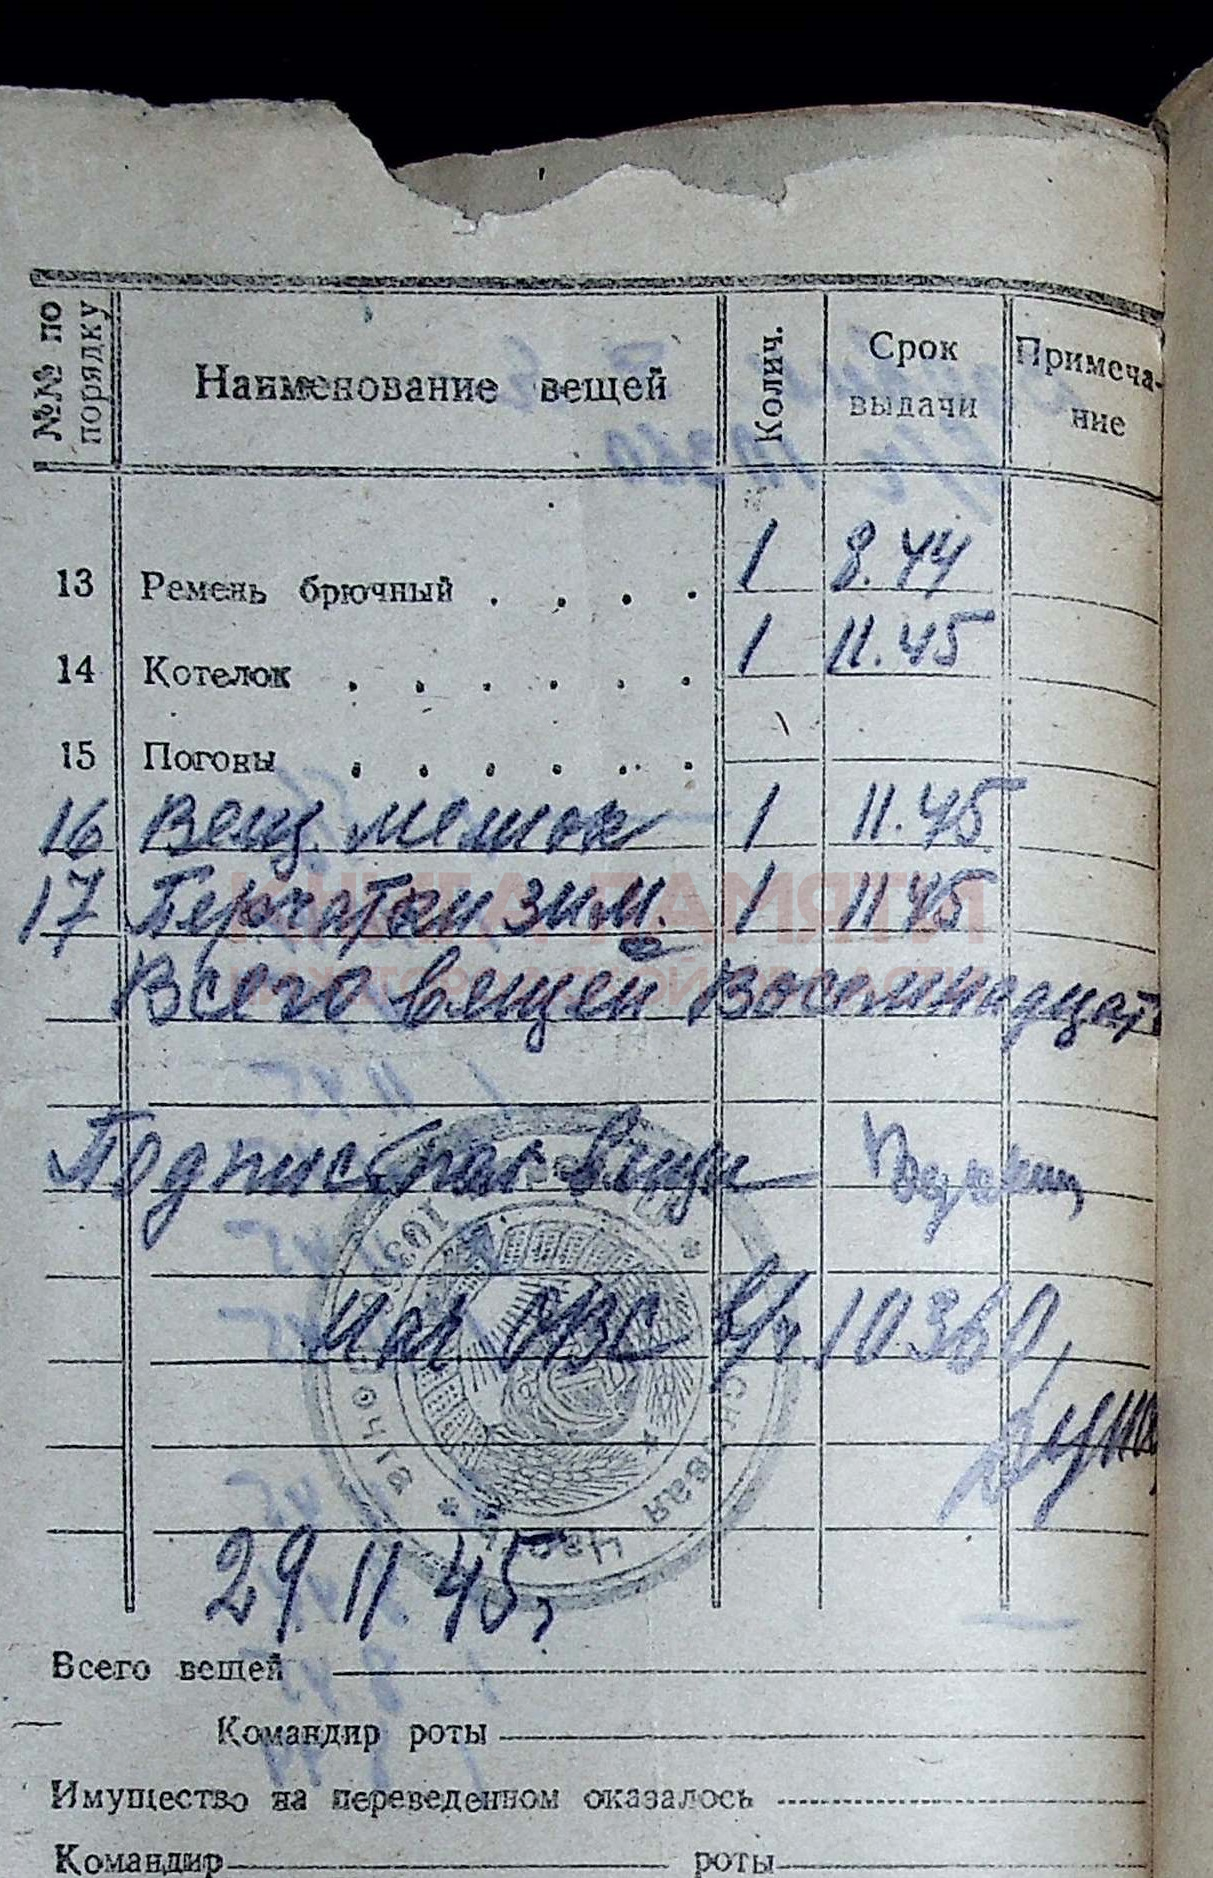 №№ по порядку Наименование вещей Колич. Срок выдачи Примеча-ние
13 Ремень брючный . . . . 1 8.44
14 Котелок . . . . . . 1 11.45
15 Погоны . . . . . .
16 Вещ. мешок 1 11.45
17 Перчатки зим. 1 11 45
Всего вещей Восемнадцать
КНИГА ПАМЯТИ
Подпись
Нач ОВС в/ч 10360
29 11 45
Всего вещей
Командир роты
Имущество на переведенном оказалось
Командир роты